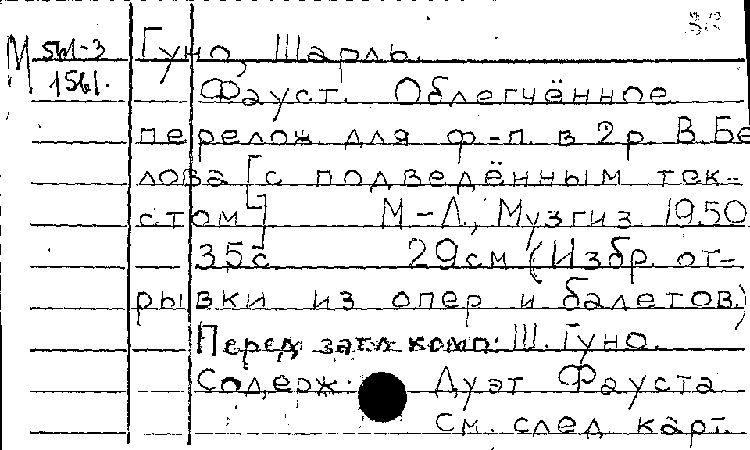 М 561-3 Гуно, Шарль.
1561. Фауст. Облегчённое
перелож. для ф-п. в 2 р. В. Бе
лова [с подведённым тек-
стом] М-Л., Музгиз 1950
35с 29см (Избр. от-
рывки из опер и балетов.)
Перед загл. комп: Ш. Гуно.
Содерж: Дуэт Фауста
См. след карт.